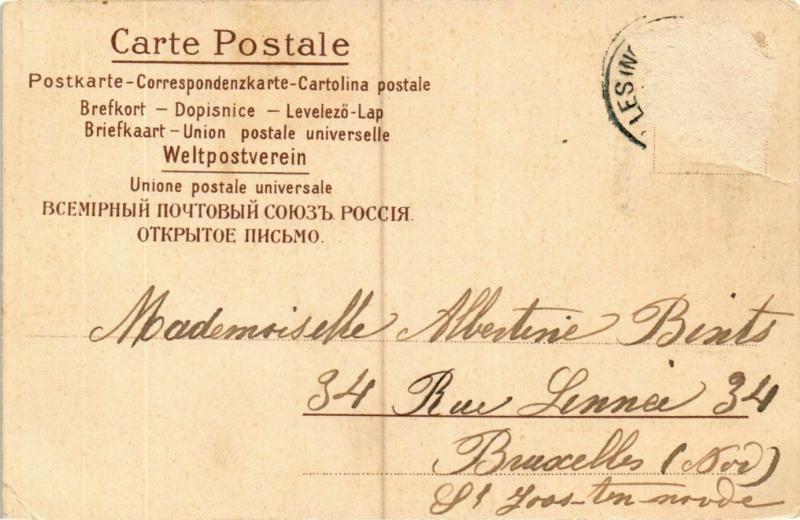 Carte Postale
Postkarte-Correspondenzkarte-Cartolina postale
Brefkort – Dopisnice – Levelező-Lap
Briefkaart – Union postale universelle
Weltpostverein
Unione postale universale
ВСЕМІРНЫЙ ПОЧТОВЫЙ СОЮЗЪ. РОССІЯ.
ОТКРЫТОЕ ПИСЬМО.
LES IN
Mademoiselle Albertine Bints
34 Rue Linnée 34
Bruxelles (Nord)
St Joos-ten-noode